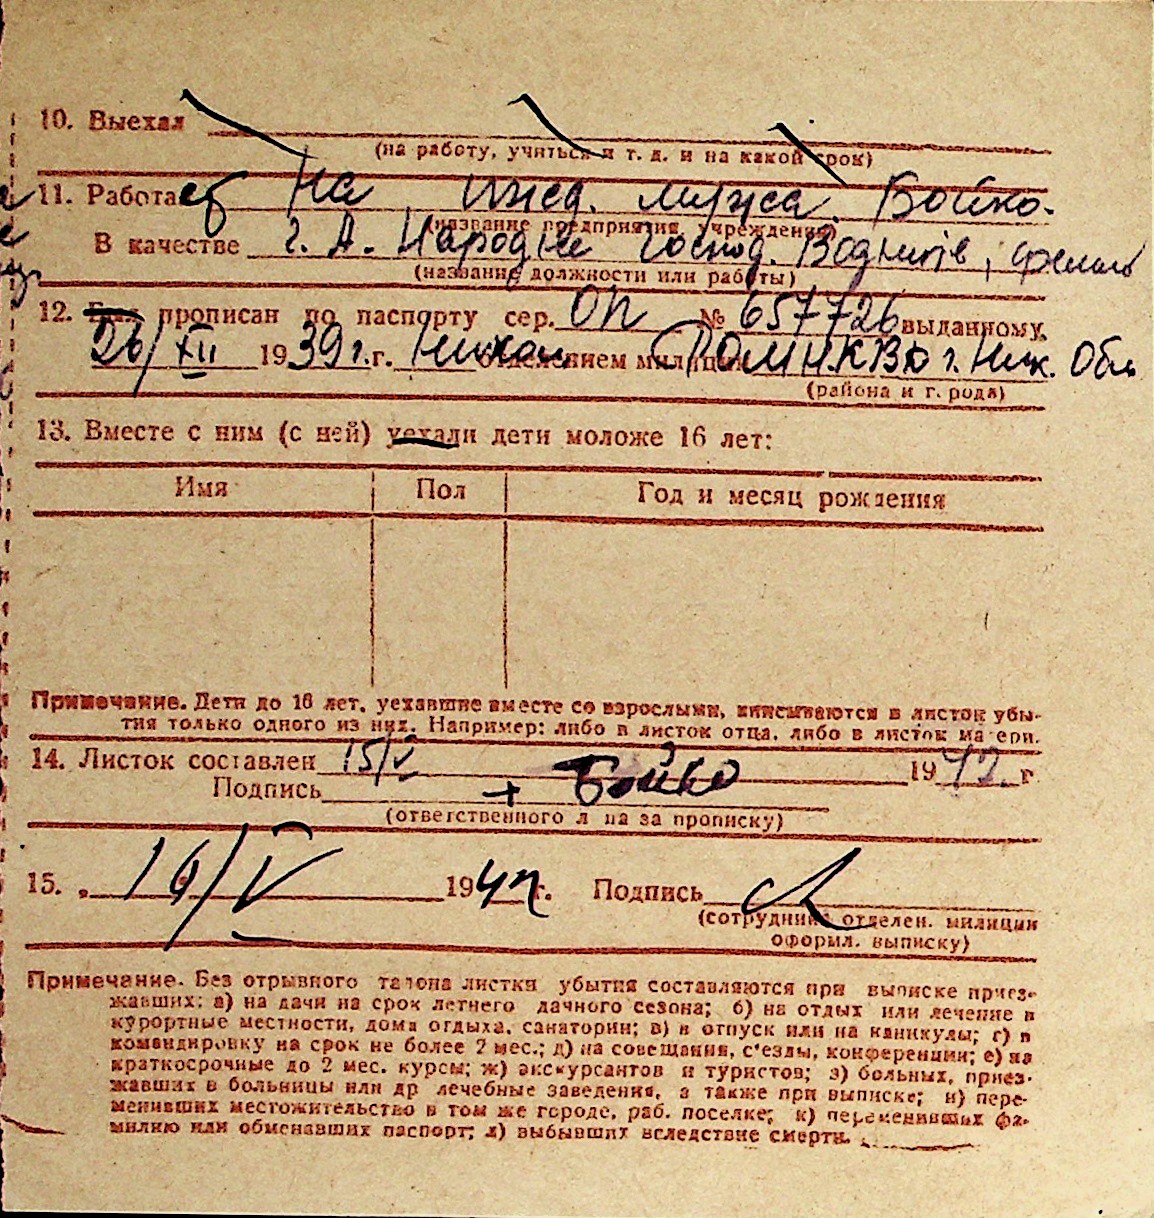 10. Выехал
(на работу, учиться и т. д. и на какой срок)
11. Работает На ижд. мужа. Бойко.
(название предприятия, учреждения)
В качестве г. А. Народне Господ. Водників,
(название должности или работы)
12. прописан по паспорту сер. ОП № 657726 выданному
26/XII 1939 г. г. отделением милиции Обл
(района и города)
13. Вместе с ним (с ней) уехали дети моложе 16 лет:
Имя Пол Год и месяц рождения
Примечание. Дети до 16 лет, уехавшие вместе со взрослыми, вписываются в листок убы-
тия только одного из них. Например: либо в листок отца, либо в листок матери.
14. Листок составлен 15/V 1942 г
Подпись + Бойко
(ответственного лица за прописку)
15. „ 16/V 1942 г. Подпись
(сотрудника отделен. милиции
оформл. выписку)
Примечание. Без отрывного талона листки убытия составляются при выписке приез-
жавших: а) на дачи на срок летнего дачного сезона; б) на отдых или лечение в
курортные местности, дома отдыха, санатории; в) в отпуск или на каникулы; г) в
командировку на срок не более 2 мес.; д) на совещания, с'езды, конференции; е) на
краткосрочные до 2 мес. курсы; ж) экскурсантов и туристов; з) больных, приез-
жавших в больницы или др лечебные заведения, а также при выписке; и) пере-
менивших местожительство в том же городе, раб. поселке; к) переменивших фа-
милию или обменавших паспорт; л) выбывших вследствие смерти.